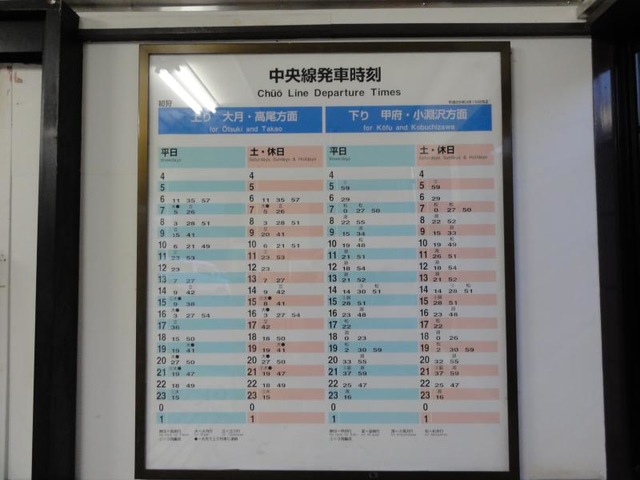 中央線発車時刻
Chūō Line Departure Times
初狩
上り 大月・高尾方面 下り 甲府・小淵沢方面
for Ōtsuki and Takao for Kōfu and Kobuchizawa
平日 土・休日 平日 土・休日
Weekdays Saturdays Sundays & Holidays Weekdays Saturdays Sundays & Holidays
4 4 4 4
5 5 5 59 5 59
6 11 35 57 6 11 35 57 6 29 6 29
7 5 26 7 5 26 7 0 27 50 7 0 27 50
8 3 28 51 8 3 28 51 8 22 55 8 22 52
9 15 41 9 20 41 9 15 34 9 15 33
10 6 21 49 10 6 21 51 10 19 48 10 19 49
11 23 53 11 23 53 11 21 51 11 26 51
12 23 12 23 12 18 54 12 18 54
13 7 27 13 7 27 13 21 52 13 21 52
14 9 42 14 9 42 14 14 30 51 14 14 28 51
15 9 38 15 8 41 15 28 51 15 28 51
16 3 27 54 16 3 27 54 16 23 48 16 23 48
17 36 17 42 17 22 17 22
18 15 50 18 18 50 18 0 23 18 0 26
19 19 41 19 19 41 19 2 30 59 19 2 30 59
20 27 50 20 27 50 20 33 55 20 32 55
21 19 47 21 19 47 21 37 59 21 37 59
22 18 49 22 18 49 22 25 47 22 25 47
23 15 23 15 23 16 23 16
0 0 0 0
1 1 1 1